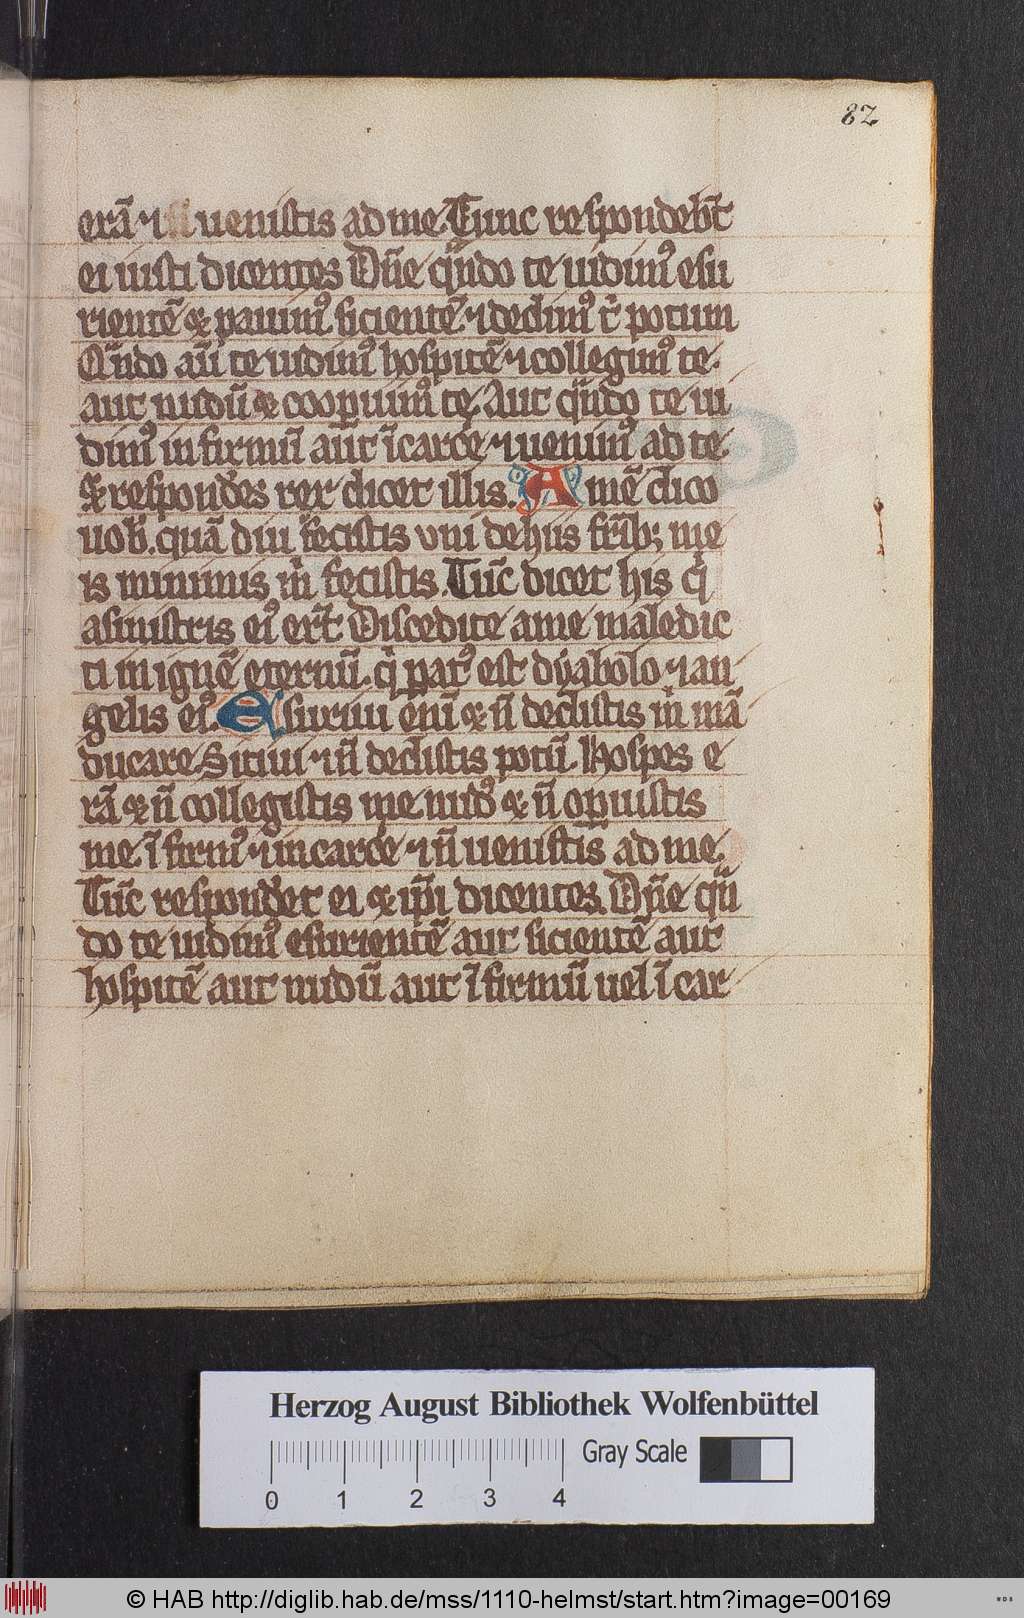 82
erā ⁊ uenistis ad me. Tunc respondeb̄t
ei iusti dicentes Dn̄e qn̄do te uidimꝰ esu
rientē & pauimꝰ sicientē ⁊ dedimꝰ t̉ potum
Qn̄do aūt te uidimꝰ hospitē ⁊ collegimꝰ te.
aut nudū & cooꝑuimꝰ te. Aut qn̄do te ui
dimꝰ in firmū aut ī carcẽ ⁊ uenimꝰ ad te.
& respondẽs rex dicet illis. Amē dico
uob̄. quā diu fecistis vni de hiis fr̄ib; me
is minimis m̉ fecistis. Tūc dicet his q̉
asinistris eiꝰ er̄t Discedite ame maledic
ti in ignē eternū. q̉ patꝰ est dyabolo ⁊ an
gelis eiꝰ. Esuriui enī & n̄ dedistis m̉ mā
ducare. Sitiui ⁊ n̄ dedistis potū. Hospes e
rā & n̄ collegistis me nudꝰ & n̄ oꝑuistis
me. ī firmꝰ ⁊ in carcẽ ⁊ n̄ uenistis ad me.
Tūc respondẽt ei & ip̄i dicentes. Dn̄e qn̄
do te uidimꝰ esurientē aut sicientē aut
hospitē aut nudū aut ī firmū uel ī car
Herzog August Bibliothek Wolfenbüttel
Gray Scale
0 1 2 3 4
© HAB http://diglib.hab.de/mss/1110-helmst/start.htm?image=00169